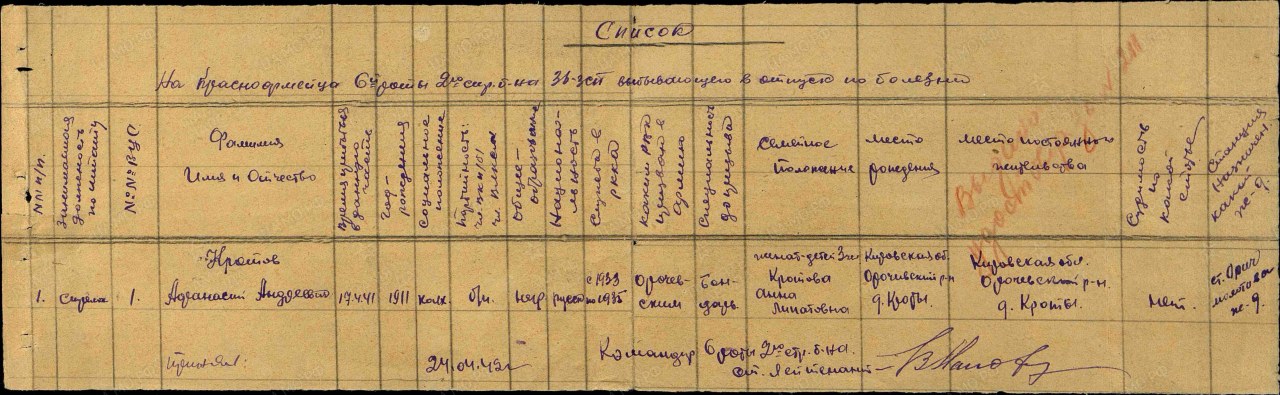 Список
На Красноармейца 6й роты 2го стр. б-на 36-ЗСП выбывающего в отпуск по болезни
№№ п/п.
Занимаемая должность по штату
№№ ВУС
Фамилия Имя и Отчество
Время прибытия в данную часть
год рождения
Социальное положение
Партийность:
Обще-образование
Национальность
Служба в РККА
Каким РВК призван в армию
Специальность до призыва
Семейное Положение
место рождения
место постоянного жительства
Судимость по какой статье
Станция Назначен. какой ж.д.
1.
Стрелок
1.
Кротов
Афанасий Андреевич
17.4.41
1911
колх.
б/п.
негр
русск
с 1933
по 1935
Оричев-
ским
Бон-
дарь
женат-детей 3-е
Кротова
Анна
Липатовна
Кировская об.
Оричевский р-н
д. Кроты.
Кировская обл.
Оричевский р-н.
д. Кроты.
нет.
ст. Орич
ж.д.
24.04.42г
Командир 6 роты 2го стр. б-на.
ст. лейтенант